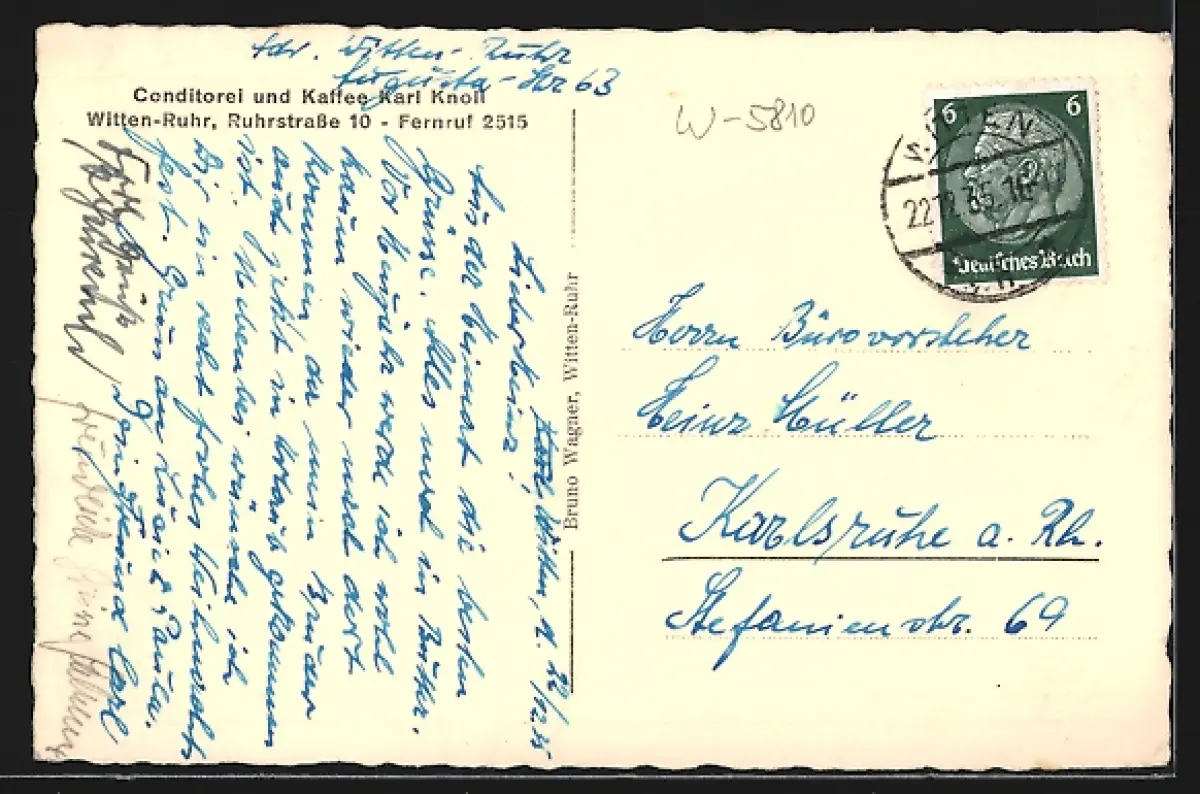 Adr. Witten-Ruhr
Augusta-Str 63
Conditorei und Kaffee Karl Knoll
Witten-Ruhr, Ruhrstraße 10 - Fernruf 2515
Witten, d. 22/12.35
Lieber Heinz!
Aus der Heimat die besten
Grüsse. Alles noch in Butter.
Vor Neujahr werde ich wohl
kaum wieder nach dort
kommen, da mein Bruder
auch jetzt in Urlaub gekommen
ist. Nebenbei wünsche ich
Dir ein recht frohes Weihnachts
fest. Gruss an Luise & Paula.
Dein Freund Carl
Bruno Wagner, Witten-Ruhr
W-5810
6 6
Deutsches Reich
WITTEN
22.12.35.16
Herrn Bürovorsteher
Heinz Müller
Karlsruhe a. Rh.
Stefanienstr. 69